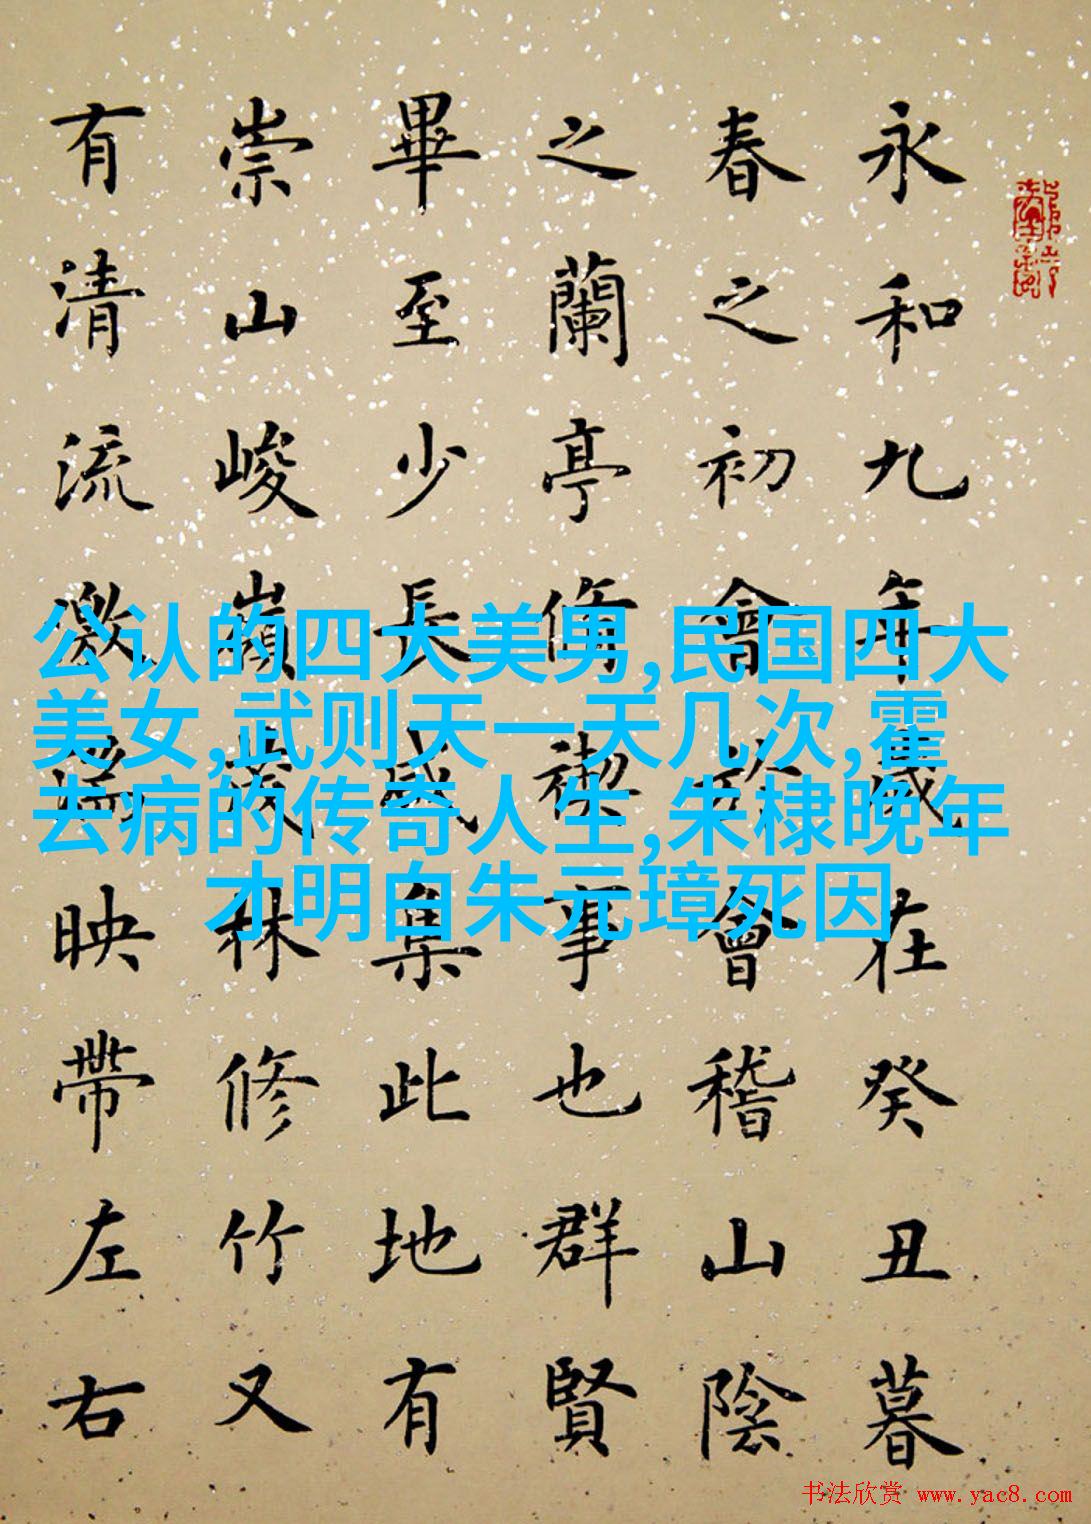 永和九年歲在癸丑暮
春之初會於會稽山陰
之蘭亭脩禊事也群賢
畢至少長咸集此地有
崇山峻嶺茂林修竹又
有清流激湍映帶左右
公认的四大美男,民国四大
美女,武则天一天几次,霍
去病的传奇人生,朱棣晚年
才明白朱元璋死因
书法欣赏 www.yac8.com